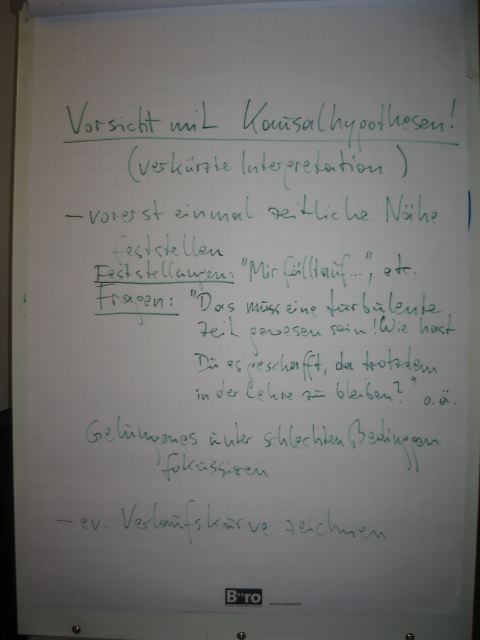 Vorsicht mit Kausalhypothesen!
(verkürzte Interpretation)
– vorerst einmal zeitliche Nähe
feststellen
Feststellungen: "Mir fällt auf...", etc.
Fragen: "Das muss eine turbulente
Zeit gewesen sein! Wie hast
Du es geschafft, da trotzdem
in der Lehre zu bleiben?" o.ä.
Gelungenes unter schlechten Bedinggen
fokussieren
– ev. Verlaufskurve zeichnen